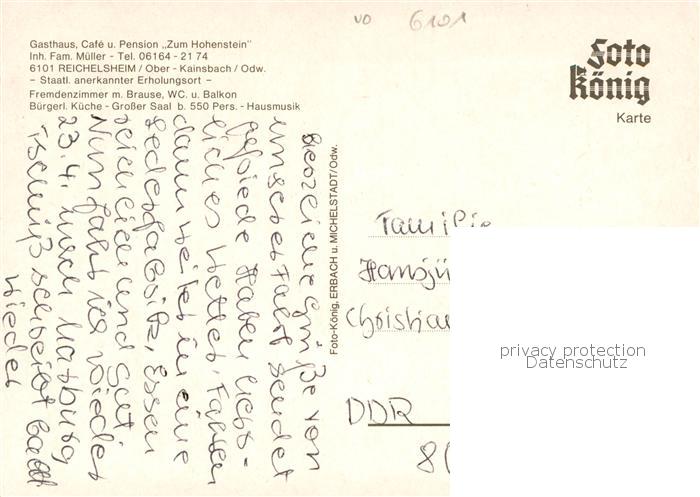 vo 6101
Gasthaus, Café u. Pension „Zum Hohenstein"
Inh. Fam. Müller - Tel. 06164 - 21 74
6101 REICHELSHEIM / Ober - Kainsbach / Odw.
– Staatl. anerkannter Erholungsort –
Fremdenzimmer m. Brause, WC. u. Balkon
Bürgerl. Küche - Großer Saal b. 550 Pers. - Hausmusik
Foto König
Karte
Foto-König, ERBACH u. MICHELSTADT/Odw.
Grüße von
unserer Fahrt sendet
haben herr-
liches Wetter. Fahren
dann weiter in eine
Essen
reichlich und gut.
Nun fahrt ihr wieder
23.4. nach
Tschüß schreibt bald
wieder
Familie
Hansjü
Christia
DDR
8
privacy protection
Datenschutz